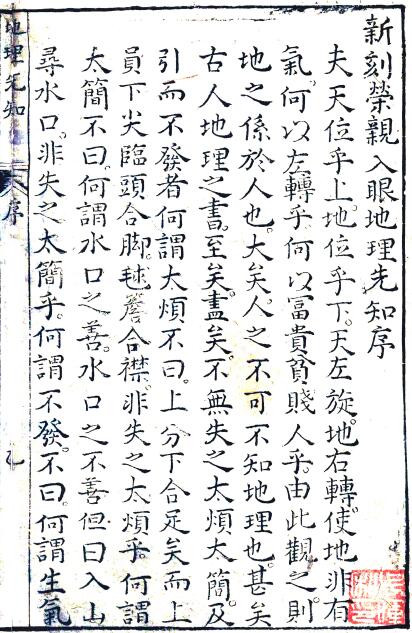 新刻榮親入眼地理先知序
夫天位乎上。地位乎下。天左旋。地右轉。使地非有
氣。何以左轉乎何以富貴貧賤人乎。由此觀之。則
地之係於人也。大矣。人之不可不知地理也。甚矣
古人地理之書。至矣。盡矣。不無失之太煩大簡。及
引而不發者何謂太煩不曰。上分下合足矣而上
員下尖臨頭合脚。毬簷合襟。非失之太煩乎。何謂
太簡不曰。何謂水口之善。水口之不善但曰入山
尋水口。非失之太簡乎。何謂不發。不曰。何謂生氣
地理先知
序